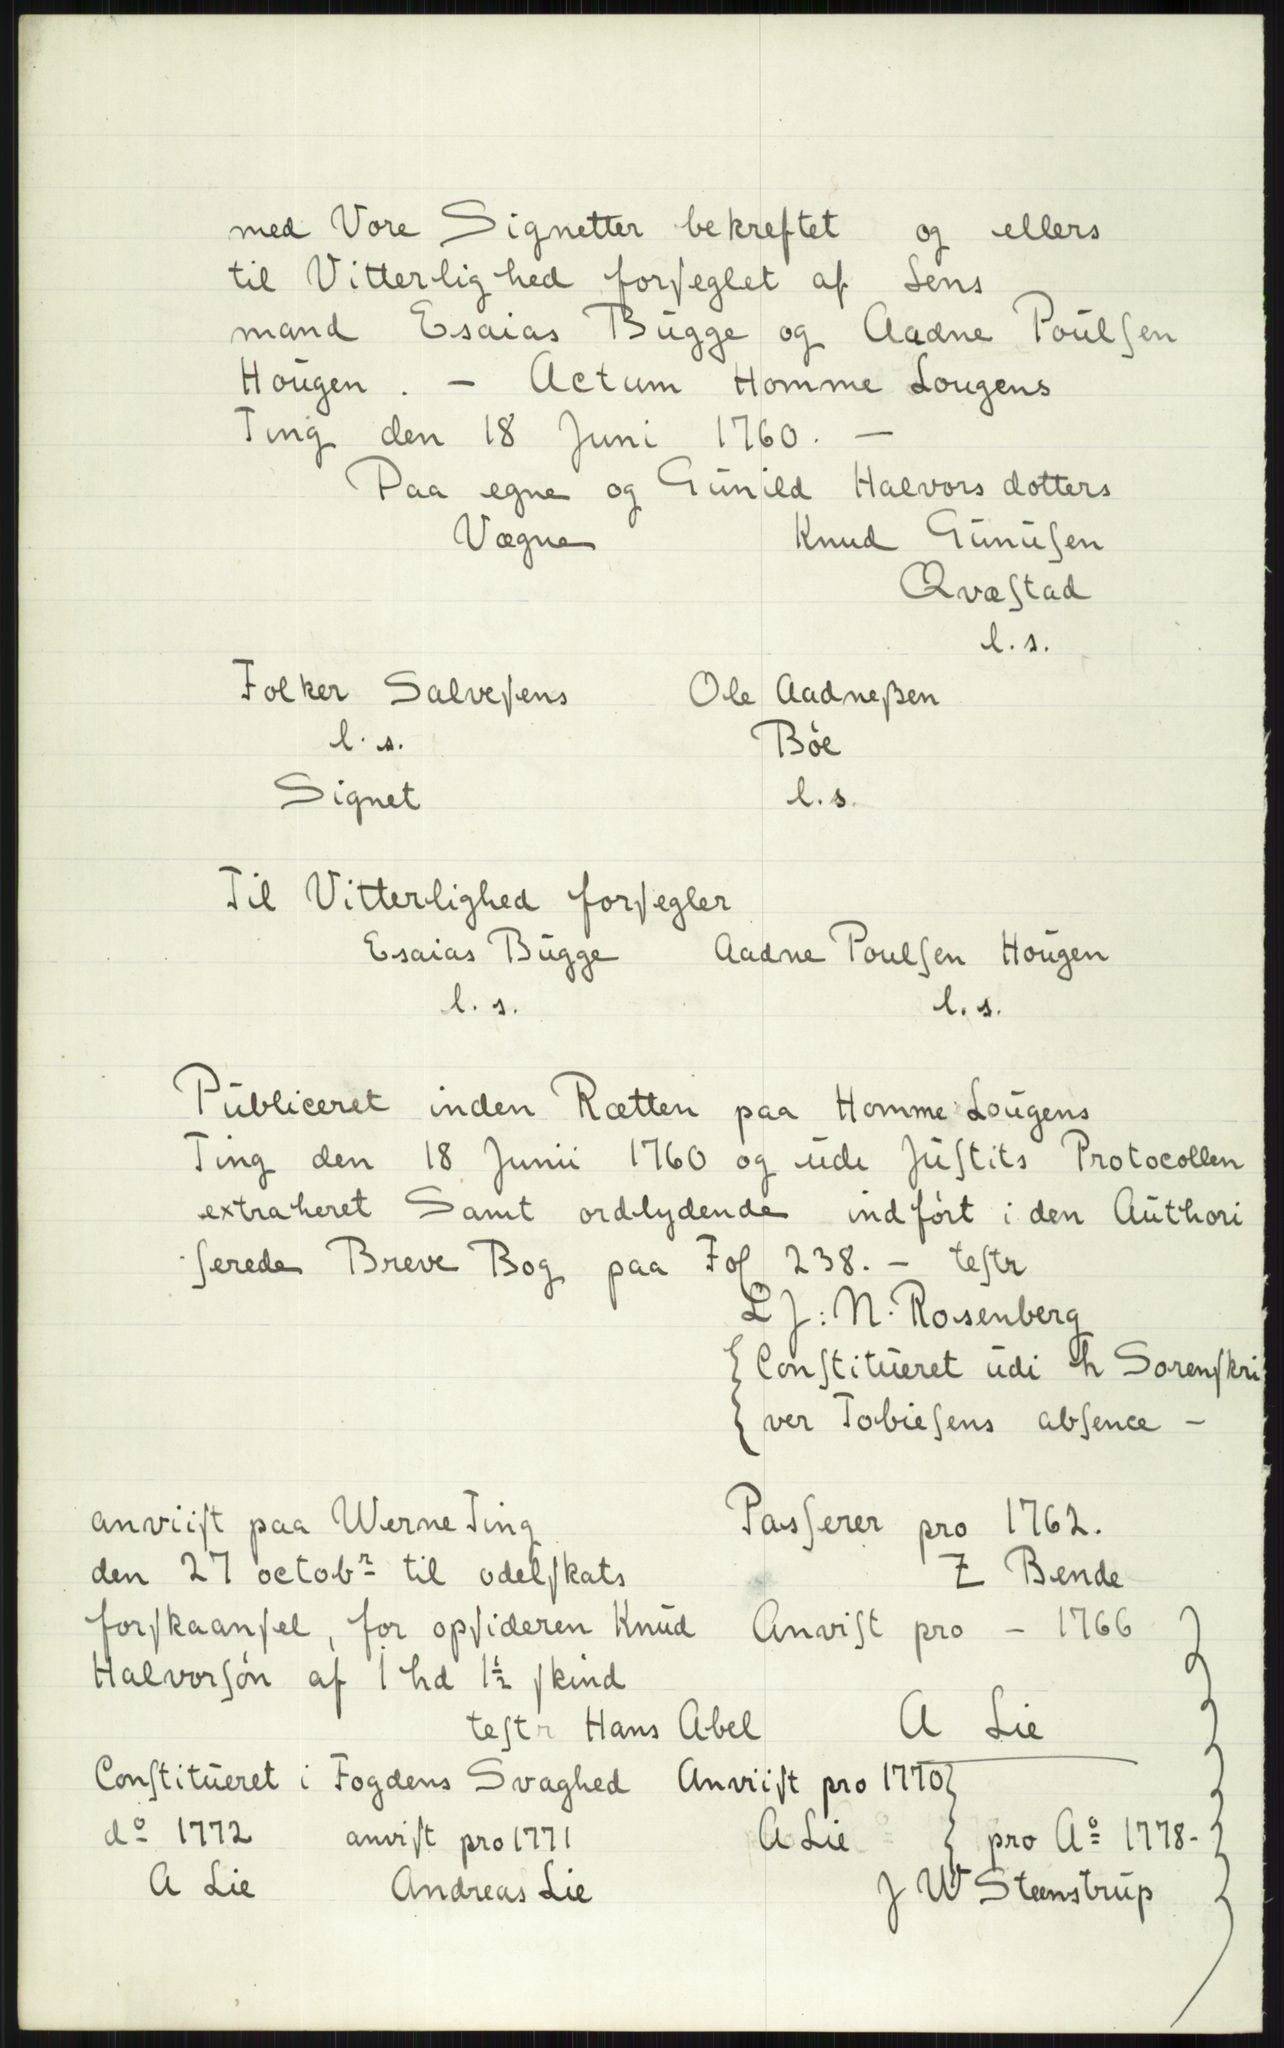 med Vore Signetter bekreftet og ellers
til Vitterlighed forseglet af Lens
mand Esaias Bügge og Aadne Poülsen
Hoügen. – Actum Homme Lougens
Ting den 18 Juni 1760. –
Paa egne og Günild Halvorsdotters
Vægne Knud Günüsen
Qvæstad
l. s.
Folker Salvesens Ole Aadneßen
l. s. Böe
Signet l. s.
Til Vitterlighed forsegler
Esaias Bügge Aadne Poulsen Hoügen
l. s. l. s.
Pübliceret inden Rætten paa Homme Loügens
Ting den 18 Junii 1760 og üdi Jüstits Protocollen
extraheret Samt ordlydende indfört i den Aüthori
serede Breve Bog paa Fol 238. – testr
L J: N. Rosenberg
Constitüeret üdi h Sorenskri
ver Tobiesens absence –
anviist paa Werne Ting Passerer pro 1762.
den 27 octobr til odelskats Z Bende
forskaansel, for opsideren Knüd Anvist pro – 1766
Halvorsön af 1 hd 1½ skind
testr Hans Abel A Lie
Constitüeret i Fogdens Svaghed Anviist pro 1770
do 1772 anvist pro 1771 A Lie pro Ao 1778-
A Lie Andreas Lie J W Steenstrüp